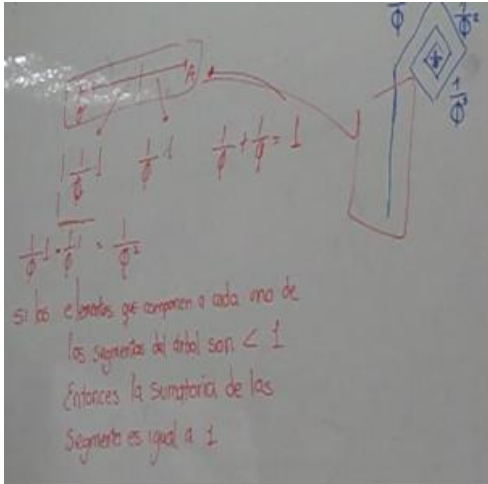 1/Φ 1/Φ²
1/Φ³
A
1 1/Φ 1 1/Φ 1 1/Φ + 1/Φ = 1 1
1/Φ 1 · 1/Φ 1 = 1/Φ²
si los elementos que componen a cada uno de
los segmentos del árbol son < 1
Entonces la sumatoria de los
Segmento es igual a 1